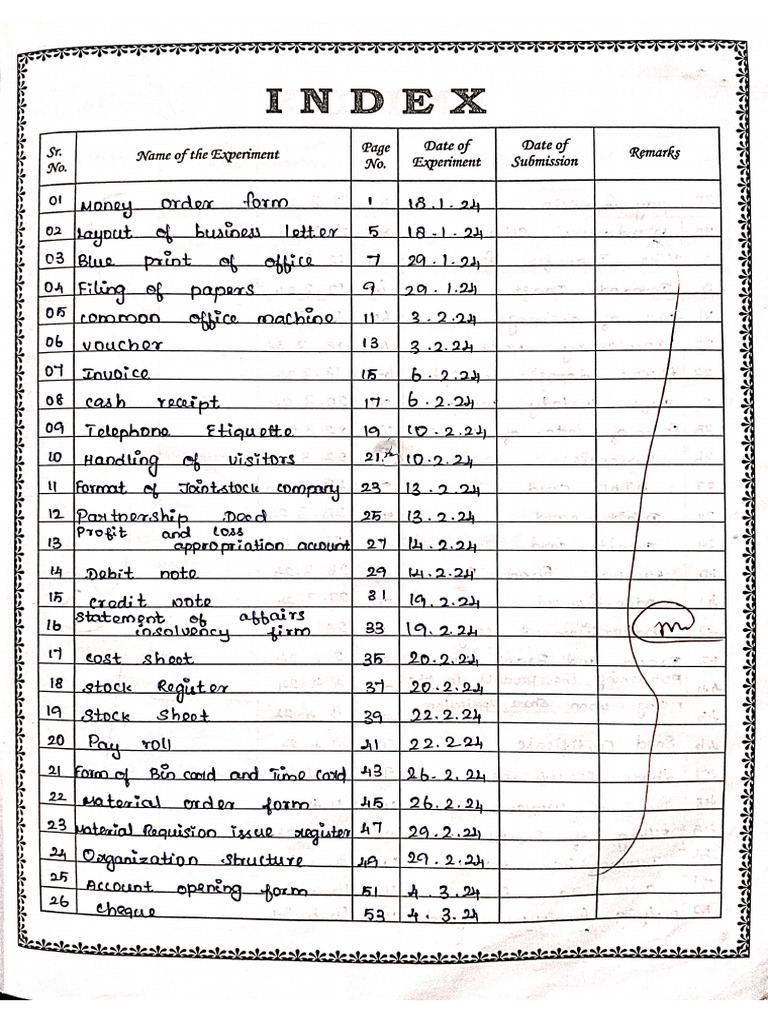 INDEX
Sr. No. Name of the Experiment Page No. Date of Experiment Date of Submission Remarks
01 Money order form 1 18.1.24
02 Layout of business letter 5 18.1.24
03 Blue print of office 7 29.1.24
04 Filing of papers 9 29.1.24
05 common office machine 11 3.2.24
06 voucher 13 3.2.24
07 Invoice 15 6.2.24
08 cash receipt 17 6.2.24
09 Telephone Etiquette 19 10.2.24
10 Handling of visitors 21 10.2.24
11 Format of Jointstock company 23 13.2.24
12 Partnership Deed 25 13.2.24
13 Profit and loss appropriation account 27 14.2.24
14 Debit note 29 14.2.24
15 credit note 31 19.2.24
16 Statement of affairs insolvency firm 33 19.2.24
17 cost sheet 35 20.2.24
18 Stock Register 37 20.2.24
19 Stock Sheet 39 22.2.24
20 Pay roll 41 22.2.24
21 Form of Bin card and Time card 43 26.2.24
22 Material order form 45 26.2.24
23 Material Requision issue register 47 29.2.24
24 Organization structure 49 29.2.24
25 Account opening form 51 4.3.24
26 cheque 53 4.3.24